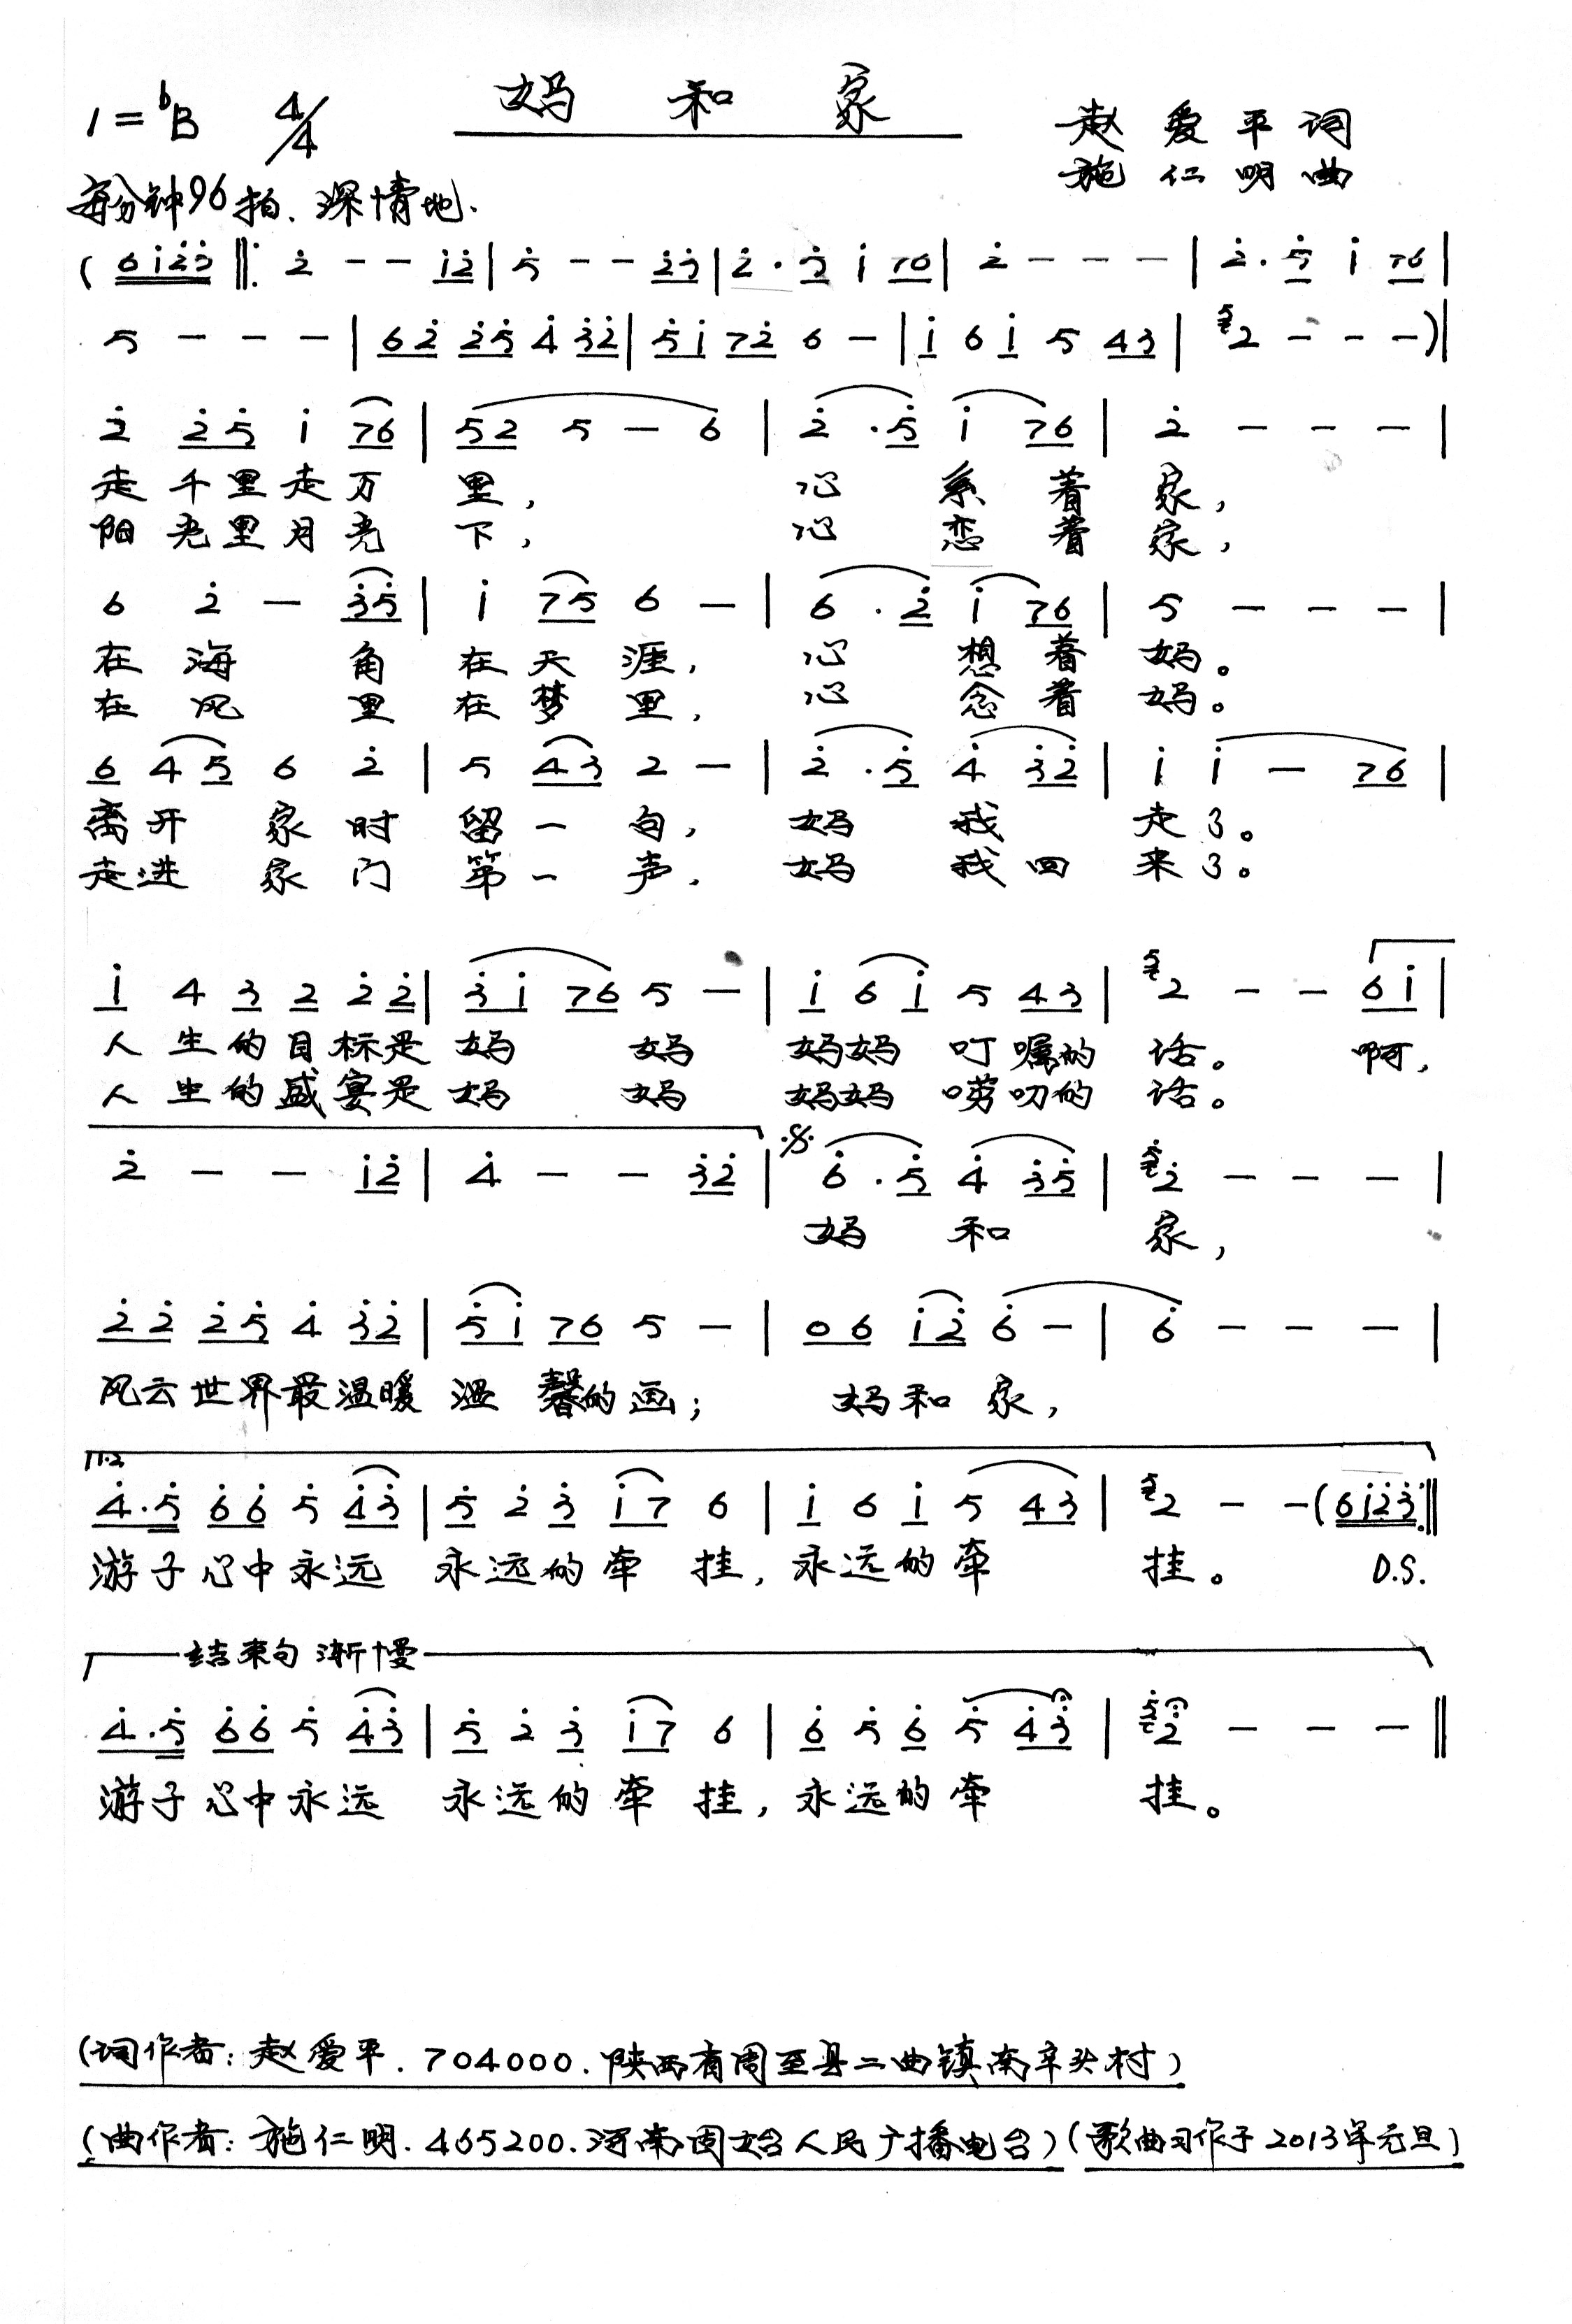 妈和家
1=♭B 4/4
赵爱平词
施仁明曲
每分钟96拍、深情地.
(6i̇2̇3̇ ‖: 2̇ - - i̇2̇ | 5 - - 2̇3̇ | 2̇·3̇ i̇ 76 | 2̇ - - - | 2̇·5̇ i̇ 76 |
5 - - - | 62̇ 2̇5̇ 4̇ 3̇2̇ | 5̇i̇ 72̇ 6 - | i̇ 6 i̇ 5 43 | 5 2 - - -) |
2̇ 2̇5̇ i̇ 76 | 52 5 - 6 | 2̇·5̇ i̇ 76 | 2̇ - - - |
走千里走万里,心系着家,
阳光里月亮下,心恋着家,
6 2̇ - 3̇5̇ | i̇ 75 6 - | 6·2̇ i̇ 76 | 5 - - - |
在海角在天涯,心想着妈。
在风里在梦里,心念着妈。
6 4 5 6 2̇ | 5 43 2 - | 2̇·5̇ 4̇ 3̇2̇ | i̇ i̇ - 76 |
离开家时留一句,妈我走了。
走进家门第一声,妈我回来了。
i̇ 4 3 2 2̇ 2̇ | 3̇i̇ 76 5 - | i̇ 6 i̇ 5 43 | 5 2 - - 6i̇ |
人生的目标是妈妈妈妈叮嘱的话。啊,
人生的盛宴是妈妈妈妈唠叨的话。
2̇ - - i̇2̇ | 4̇ - - 3̇2̇ | 𝄋 6̇·5̇ 4̇ 3̇5̇ | 5̇ 2̇ - - - |
妈和家,
2̇2̇ 2̇5̇ 4̇ 3̇2̇ | 5̇i̇ 76 5 - | 06 i̇2̇ 6̇ - | 6̇ - - - |
风云世界最温暖温馨的画;妈和家,
1.2.
4̇·5̇ 6̇6̇ 5̇ 4̇3̇ | 5̇ 2̇ 3̇ i̇7 6 | i̇ 6 i̇ 5 43 | 5 2 - - (6i̇2̇3̇ :‖
游子心中永远永远的牵挂,永远的牵挂。 D.S.
结束句 渐慢
4̇·5̇ 6̇6̇ 5̇ 4̇3̇ | 5̇ 2̇ 3̇ i̇7 6 | 6̇ 5̇ 6̇ 5̇ 4̇3̇ | 5̇ 2̇ - - - ‖
游子心中永远永远的牵挂,永远的牵挂。
(词作者:赵爱平.704000.陕西省周至县二曲镇南辛头村)
(曲作者:施仁明.465200.河南固始人民广播电台)(歌曲习作于2013年元旦)